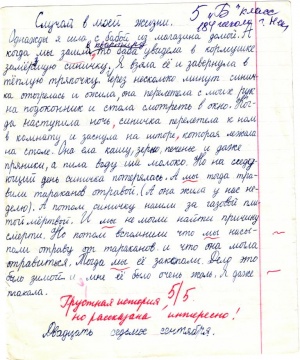 Случай в моей жизни. 5 "Б" класс
Однажды я шла с бабой из магазина домой. А
когда мы зашли в квартиру, то баба увидела в кормушке
замёрзшую синичку. Я взяла её и завернула в
тёплую тряпочку. Через несколько минут синич-
ка отогрелась и ожила, она перелетела с моих рук
на подоконник и стала смотреть в окно. Ког-
да наступила ночь, синичка перелетела к нам
в комнату и заснула на шторе, которая лежала
на столе. Она ела кашу, зерно, печенье и даже
пряники, а пила воду или молоко. Но на следу-
ющий день синичка потерялась. А мы тогда тра-
вили тараканов отравой. (А она жила у нас не-
делю). А потом синичку нашли за газовой пли-
той мёртвой. И мы не могли найти причину
смерти. Но потом вспомнили что мы насы-
пали отраву от тараканов и что она могла
отравиться. Тогда мы её закопали. Дело это
было зимой и мне её было очень жаль. Я даже
плакала.
5/5
Грустная история,
но рассказана интересно!
Двадцать седьмое сентября.